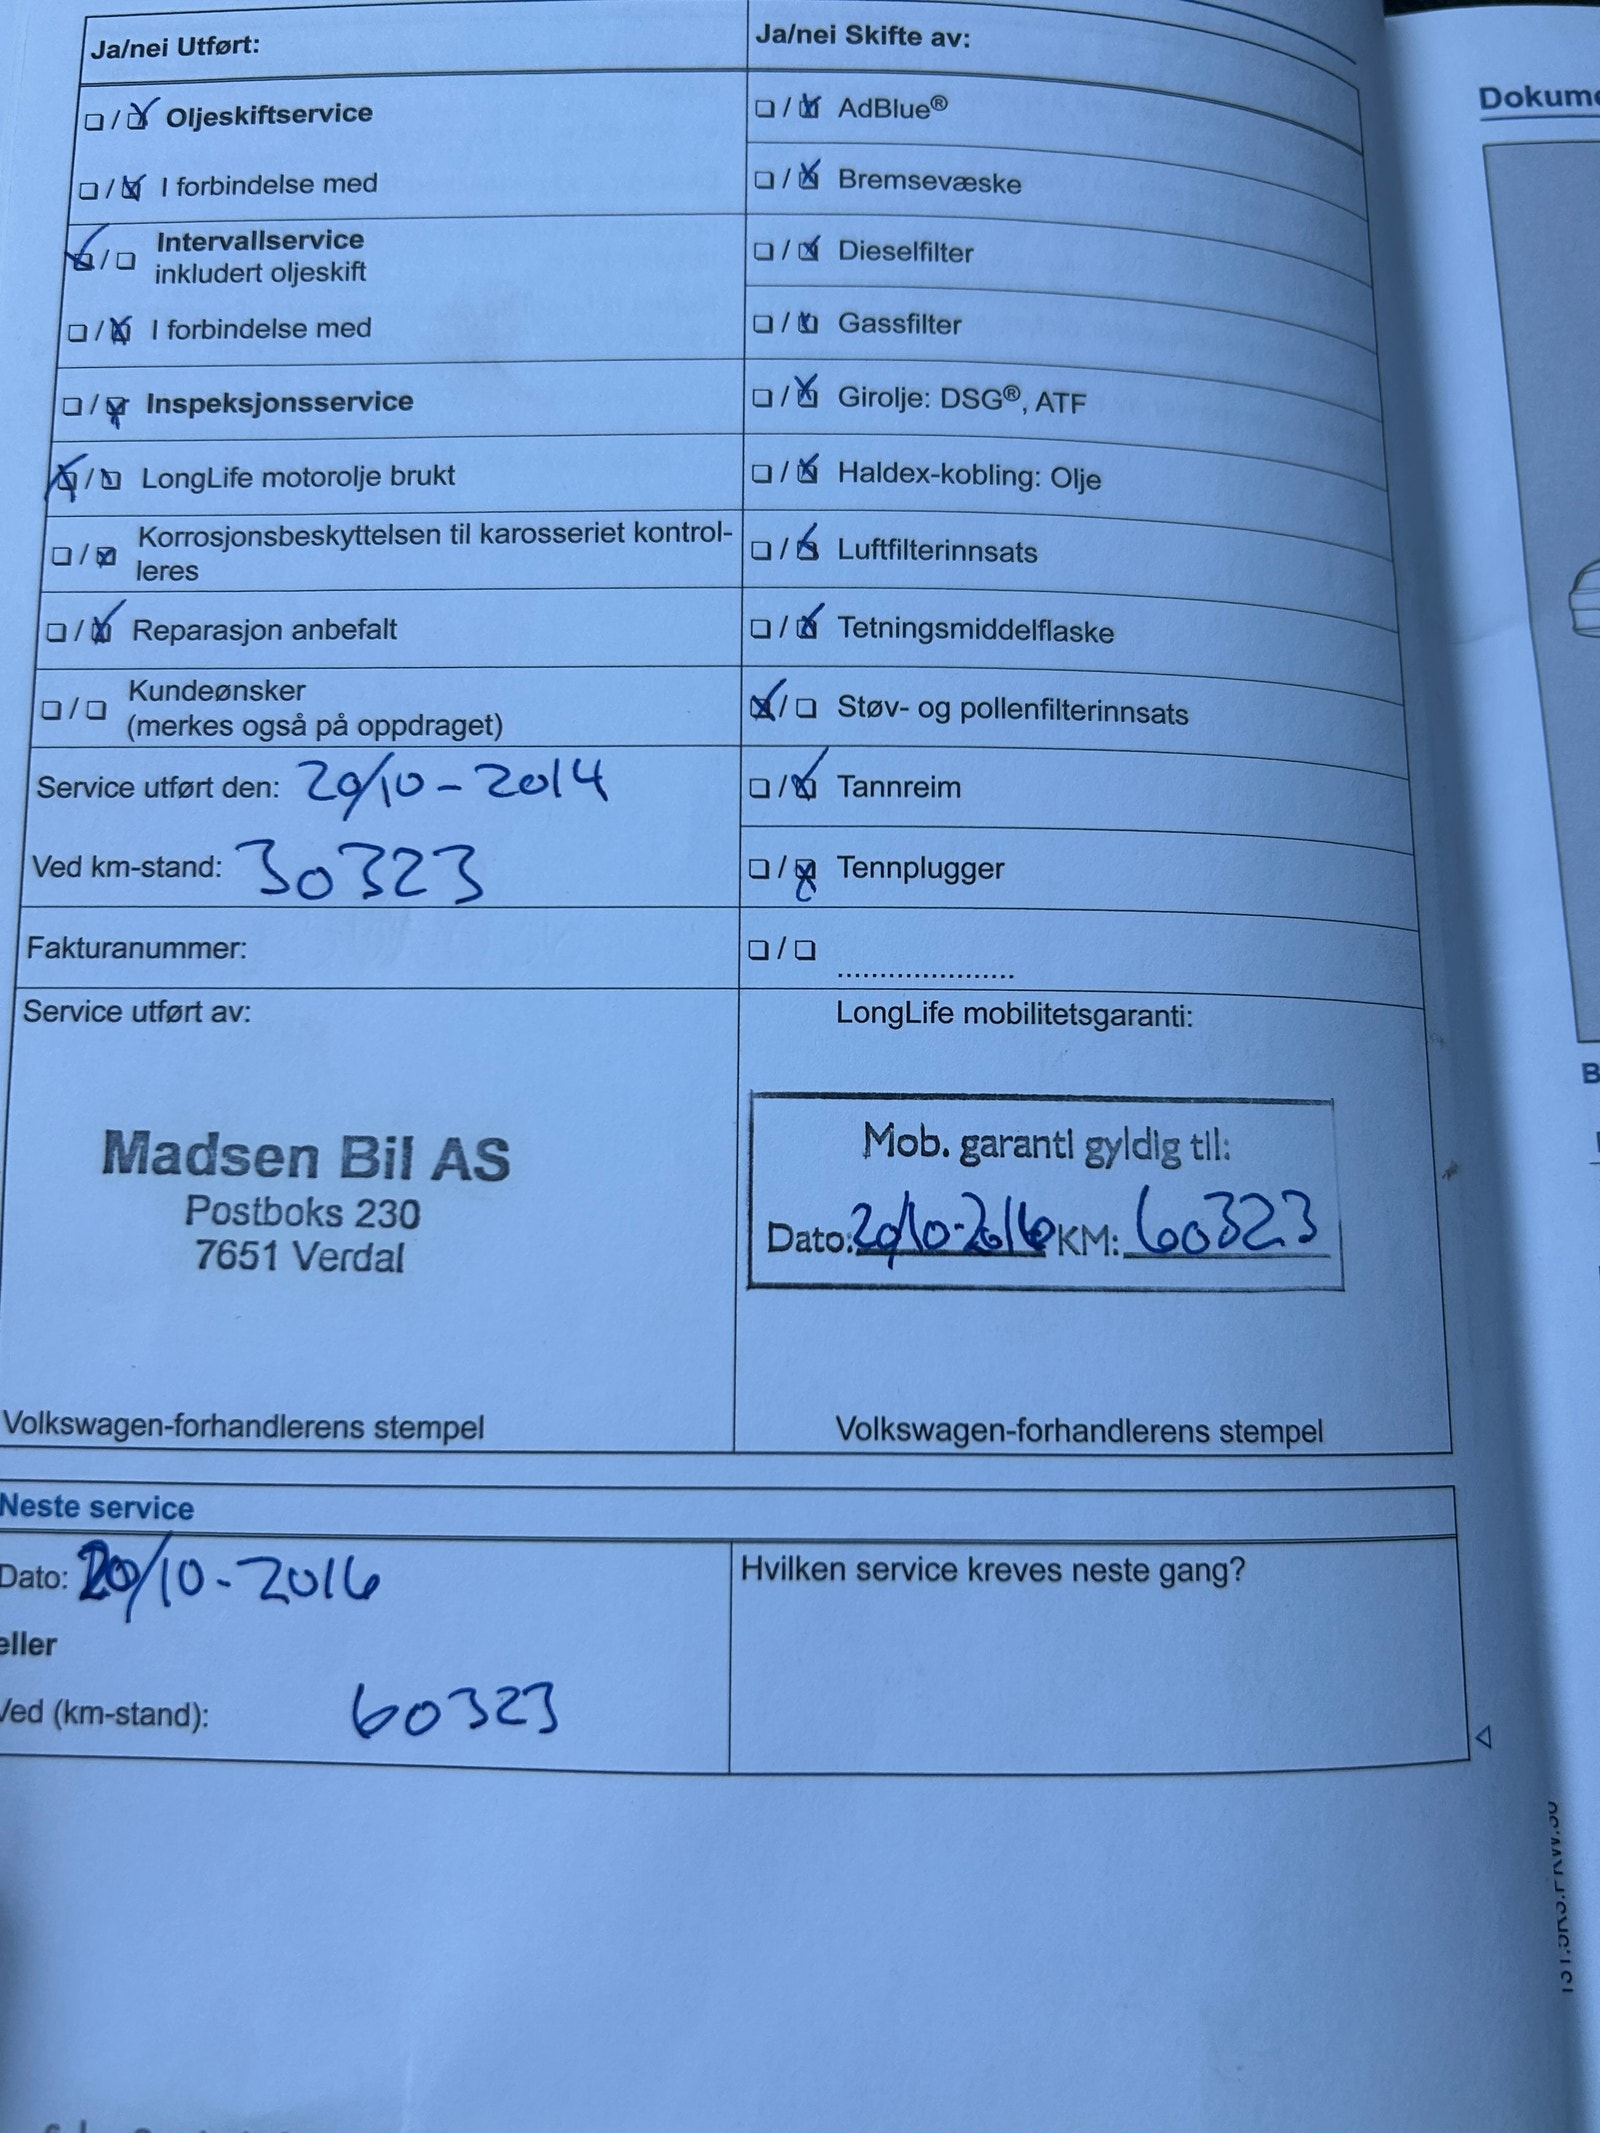 Ja/nei Utført:
Oljeskiftservice
I forbindelse med
Intervallservice
inkludert oljeskift
I forbindelse med
Inspeksjonsservice
LongLife motorolje brukt
Korrosjonsbeskyttelsen til karosseriet kontrol-
leres
Reparasjon anbefalt
Kundeønsker
(merkes også på oppdraget)
Service utført den: 20/10-2014
Ved km-stand: 30323
Fakturanummer:
Service utført av:
Madsen Bil AS
Postboks 230
7651 Verdal
Volkswagen-forhandlerens stempel
Ja/nei Skifte av:
AdBlue®
Bremsevæske
Dieselfilter
Gassfilter
Girolje: DSG®, ATF
Haldex-kobling: Olje
Luftfilterinnsats
Tetningsmiddelflaske
Støv- og pollenfilterinnsats
Tannreim
Tennplugger
.....................
LongLife mobilitetsgaranti:
Mob. garanti gyldig til:
Dato: 20/10-2016 KM: 60323
Volkswagen-forhandlerens stempel
Neste service
Dato: 20/10-2016
eller
Ved (km-stand): 60323
Hvilken service kreves neste gang?
Dokume
B